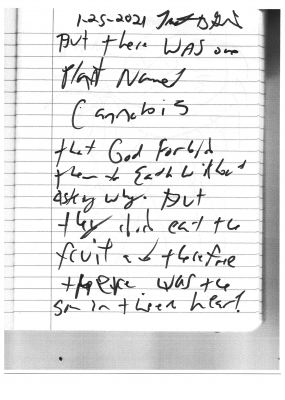 1-25-2021
But there WAS one
Plant Named
Cannabis
that God Forbid
them to Eat without
asking why. But
they did eat the
fruit and therefore
there was the
Sin in their heart